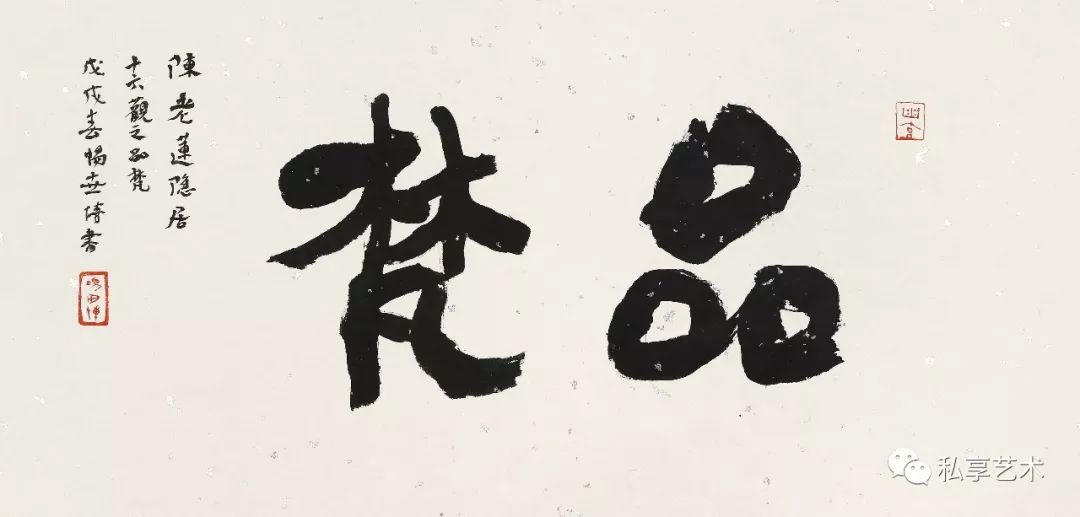 品梵
陳老蓮隱居
十六觀之品梵
戊戌春書
私享艺术